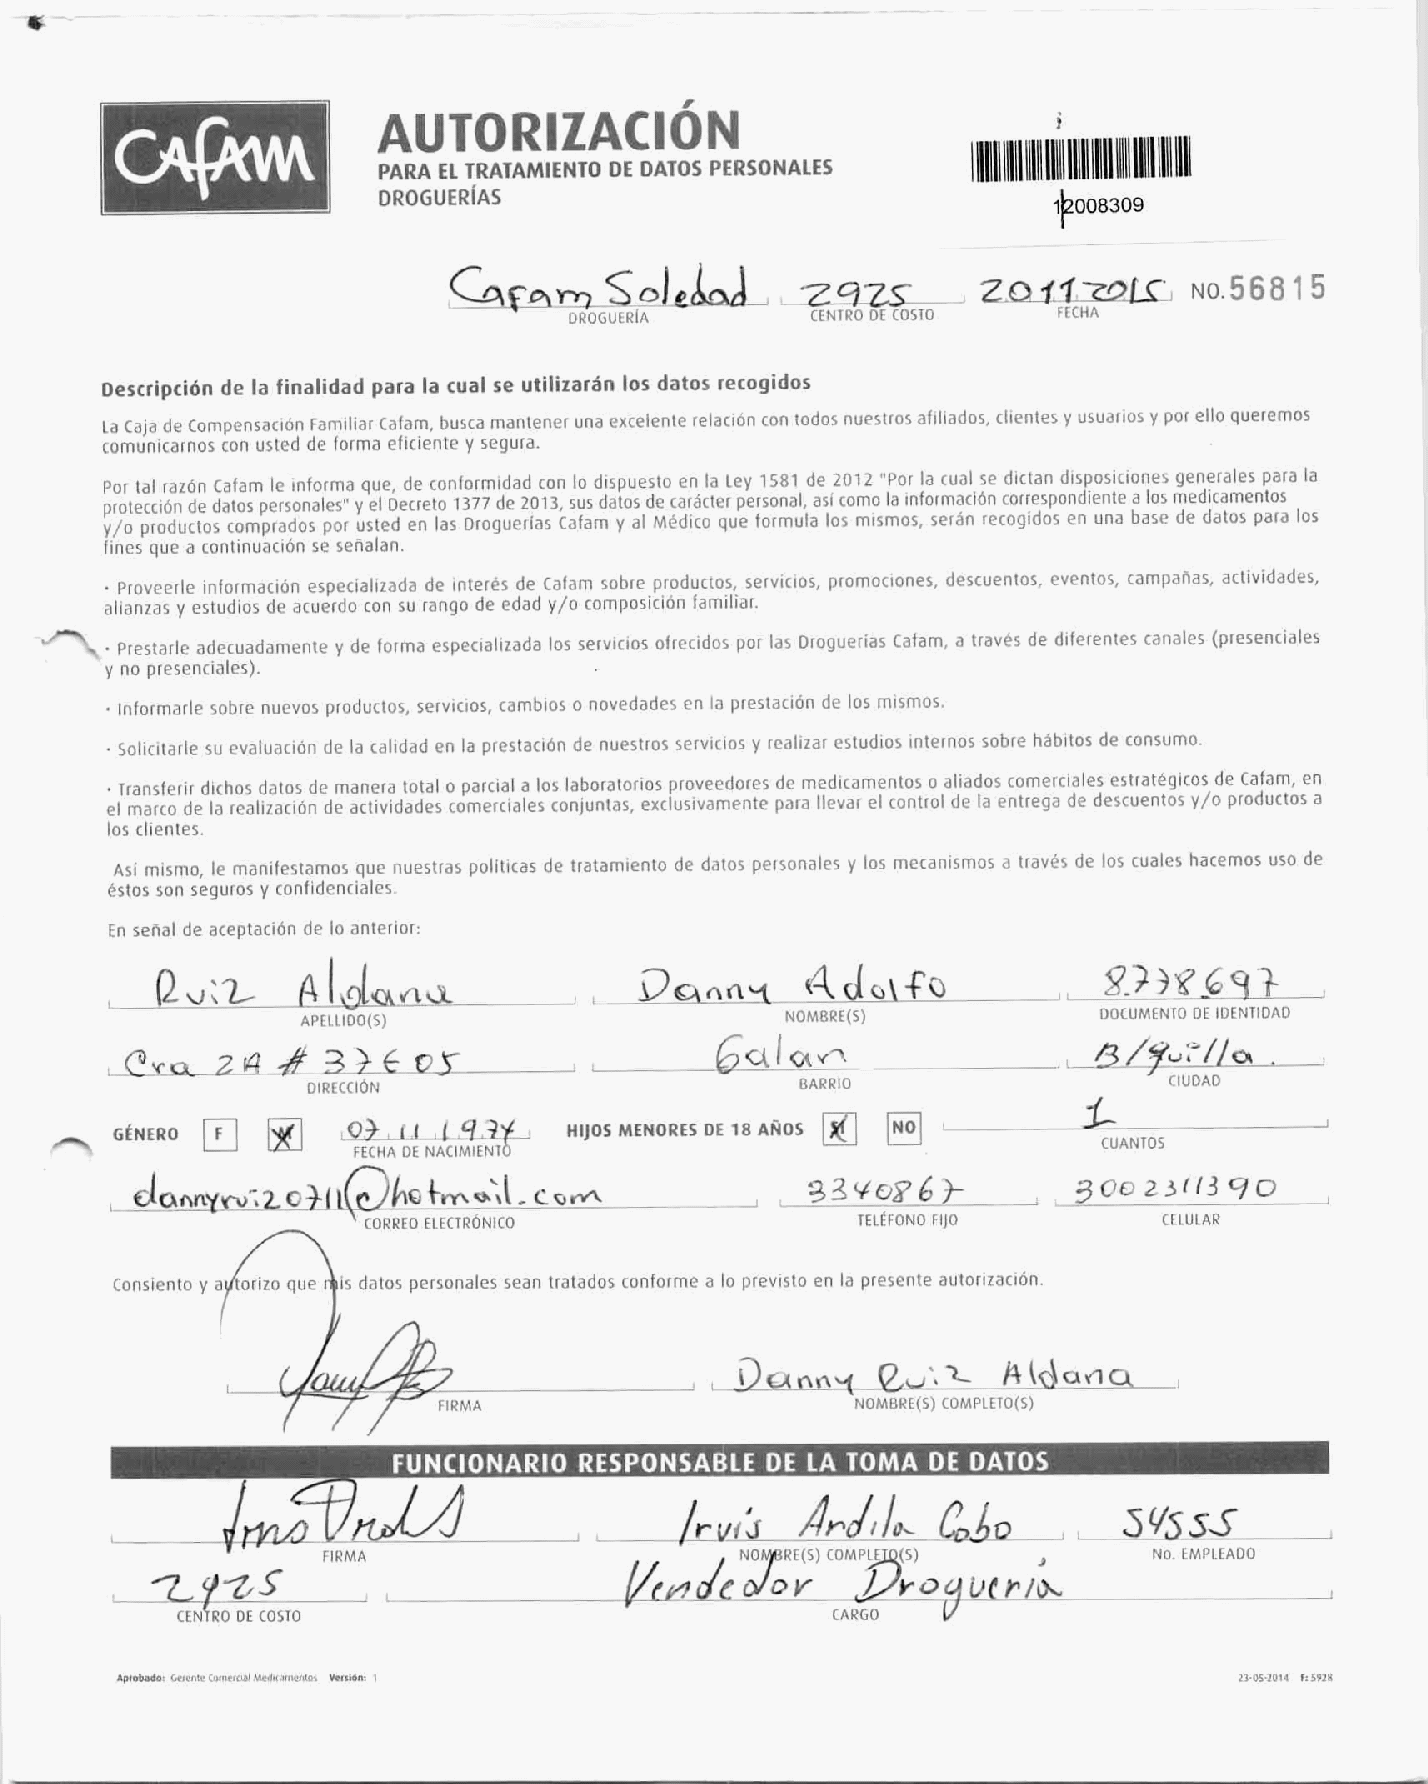 CAFAM
AUTORIZACIÓN
PARA EL TRATAMIENTO DE DATOS PERSONALES
DROGUERÍAS
12008309
Cafam Soledad 2925 20 11 2015 NO. 56815
DROGUERÍA CENTRO DE COSTO FECHA
Descripción de la finalidad para la cual se utilizarán los datos recogidos
La Caja de Compensación Familiar Cafam, busca mantener una excelente relación con todos nuestros afiliados, clientes y usuarios y por ello queremos
comunicarnos con usted de forma eficiente y segura.
Por tal razón Cafam le informa que, de conformidad con lo dispuesto en la Ley 1581 de 2012 "Por la cual se dictan disposiciones generales para la
protección de datos personales" y el Decreto 1377 de 2013, sus datos de carácter personal, así como la información correspondiente a los medicamentos
y/o productos comprados por usted en las Droguerías Cafam y al Médico que formula los mismos, serán recogidos en una base de datos para los
fines que a continuación se señalan.
· Proveerle información especializada de interés de Cafam sobre productos, servicios, promociones, descuentos, eventos, campañas, actividades,
alianzas y estudios de acuerdo con su rango de edad y/o composición familiar.
· Prestarle adecuadamente y de forma especializada los servicios ofrecidos por las Droguerías Cafam, a través de diferentes canales (presenciales
y no presenciales).
· Informarle sobre nuevos productos, servicios, cambios o novedades en la prestación de los mismos.
· Solicitarle su evaluación de la calidad en la prestación de nuestros servicios y realizar estudios internos sobre hábitos de consumo.
· Transferir dichos datos de manera total o parcial a los laboratorios proveedores de medicamentos o aliados comerciales estratégicos de Cafam, en
el marco de la realización de actividades comerciales conjuntas, exclusivamente para llevar el control de la entrega de descuentos y/o productos a
los clientes.
Así mismo, le manifestamos que nuestras políticas de tratamiento de datos personales y los mecanismos a través de los cuales hacemos uso de
éstos son seguros y confidenciales.
En señal de aceptación de lo anterior:
Ruiz Aldana Danny Adolfo 8.778.697
APELLIDO(S) NOMBRE(S) DOCUMENTO DE IDENTIDAD
Cra 2A # 37E05 Galan B/quilla.
DIRECCIÓN BARRIO CIUDAD
GÉNERO F 07 11 1974 HIJOS MENORES DE 18 AÑOS NO 1
FECHA DE NACIMIENTO CUANTOS
dannyruiz0711@hotmail.com 3340867 3002311390
CORREO ELECTRÓNICO TELÉFONO FIJO CELULAR
Consiento y autorizo que mis datos personales sean tratados conforme a lo previsto en la presente autorización.
Danny Ruiz Aldana
FIRMA NOMBRE(S) COMPLETO(S)
FUNCIONARIO RESPONSABLE DE LA TOMA DE DATOS
Irvis Ardila Cobo 54555
FIRMA NOMBRE(S) COMPLETO(S) No. EMPLEADO
2925 Vendedor Drogueria
CENTRO DE COSTO CARGO
Aprobado: Gerente Comercial Medicamentos Versión: 1 23-05-2014 f: 5928